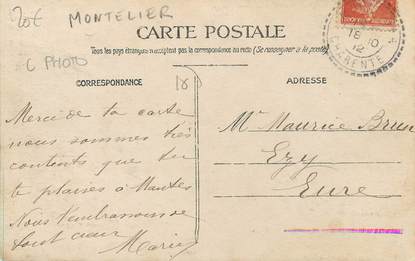 20€ MONTELIER
C PHOTO
CARTE POSTALE
Tous les pays étrangers n'acceptent pas la correspondance au recto (Se renseigner à la poste)
CORRESPONDANCE
ADRESSE
18 10
12
CHARENTE
Merci de ta carte
nous sommes très
contents que tu
te plaises à Mantes
Nous t'embrassons de
tout cœur
Marie
Mr Maurice Brun
Ezy
Eure